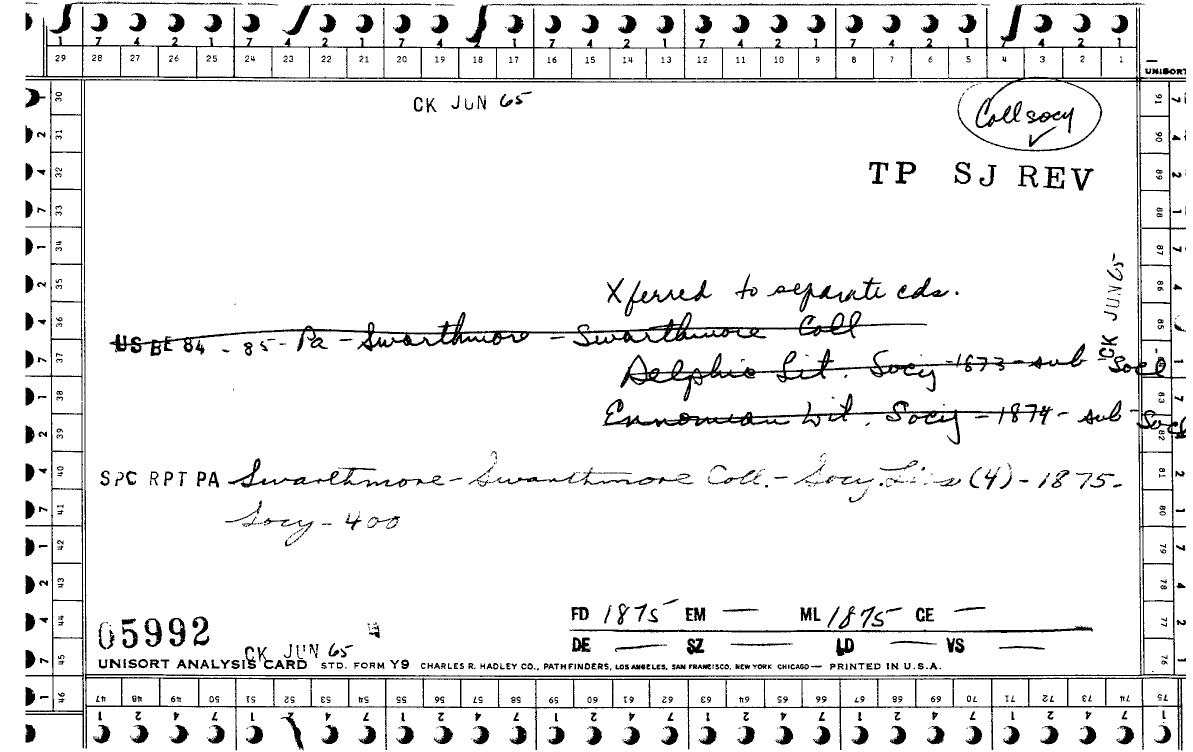 1 7 4 2 1 7 4 2 1 7 4 2 1 7 4 2 1 7 4 2 1 7 4 2 1 7 4 2 1
29 28 27 26 25 24 23 22 21 20 19 18 17 16 15 14 13 12 11 10 9 8 7 6 5 4 3 2 1
UNISORT
CK JUN 65
Coll socy
TP SJ REV
CK JUN 65
Xferred to separate cds.
US BE 84 - 85 - Pa - Swarthmore - Swarthmore Coll
Delphic Lit. Socy - 1873 - sub Socl
Eunomian Lit. Socy - 1874 - sub - Socl
SPC RPT PA Swarthmore - Swarthmore Coll. - Socy Libs (4) - 1875.
Socy - 400
FD 1875 EM — ML 1875 CE —
DE — SZ — LD — VS —
05992
CK JUN 65
UNISORT ANALYSIS CARD STD. FORM Y9 CHARLES R. HADLEY CO., PATHFINDERS, LOS ANGELES, SAN FRANCISCO, NEW YORK CHICAGO — PRINTED IN U.S.A.
47 48 49 50 51 52 53 54 55 56 57 58 59 60 61 62 63 64 65 66 67 68 69 70 71 72 73 74 75